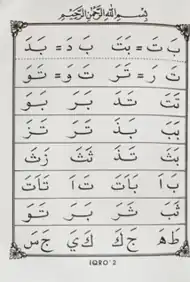 بِسْمِ اللهِ الرَّحْمٰنِ الرَّحِيْمِ
بَ تَ = بَتَ بَ دَ = بَدَ
تَ رَ = تَرَ تَ وَ = تَوَ
تَتَ تَدَ بَرَ بَوَ
بَبَ بَذَ تَرَ تَزَ
بَثَ تَذَ ثَثَ زَثَ
بَ اَ بَاتَ تَ اَ تَاتَ
ثَبَ ثَرَ بَرَ تَوَ
طَ هَ جَ كَ كَ يَ جَ سَ
IQRO' 2